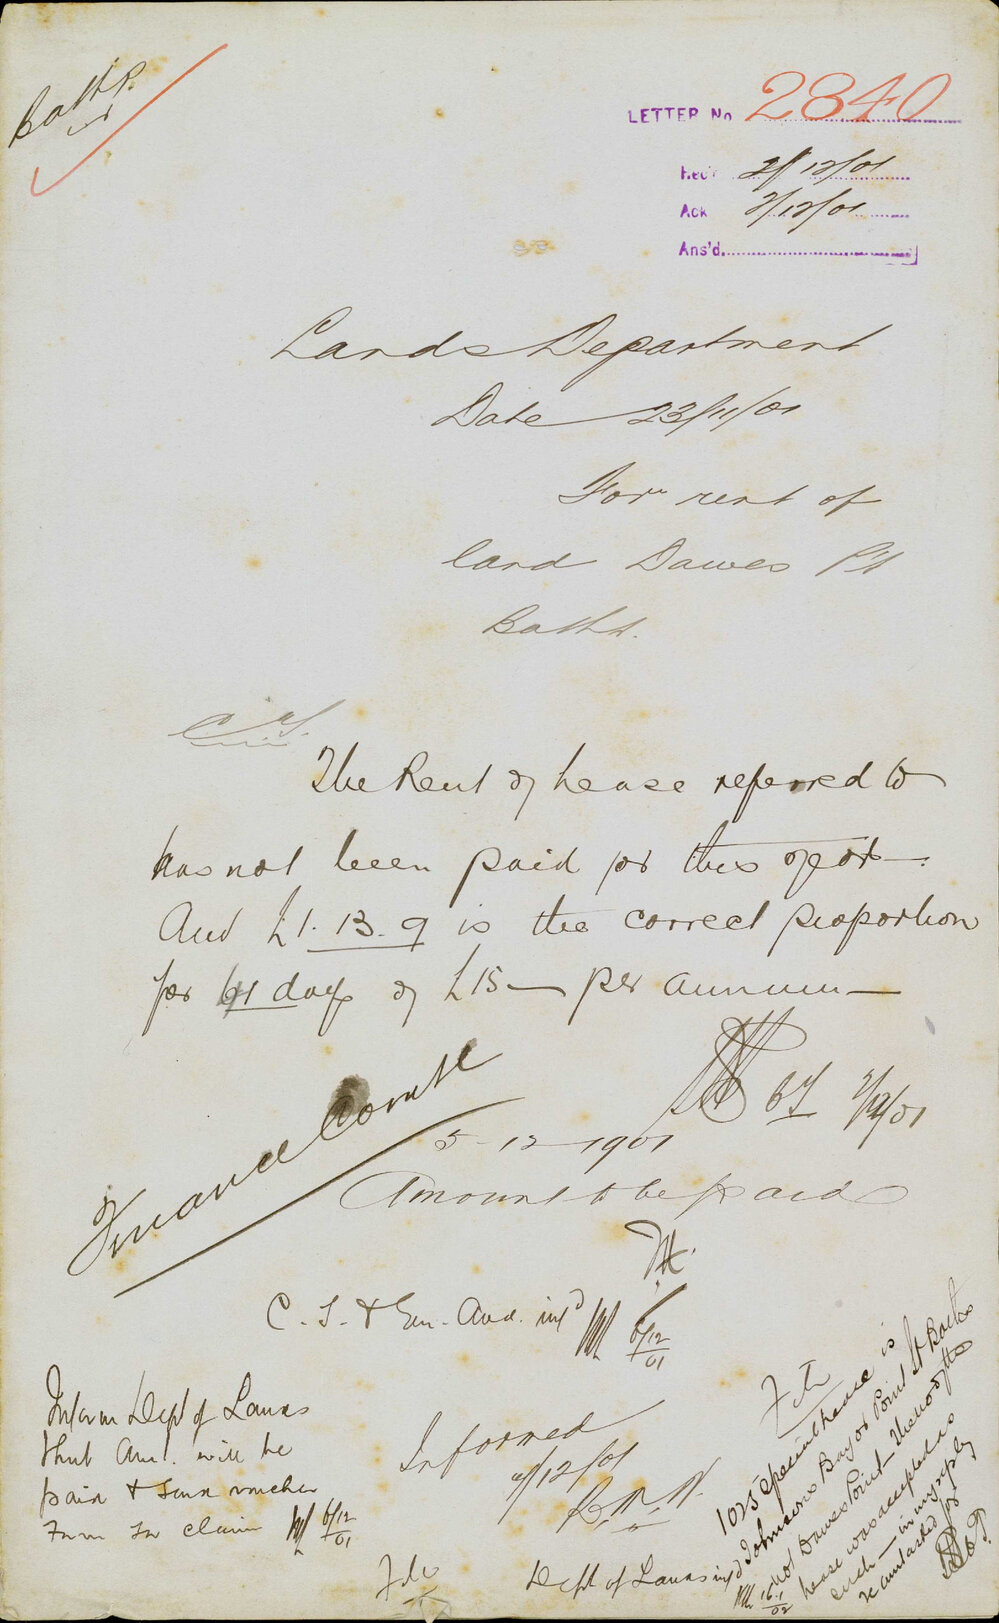 Baths.
LETTER No 2840
Rec'd 2/12/01
Ack 2/12/01
Ans'd.
Lands Department
Date 23/11/01
For rent of
land Dawes Pt
Baths.
C.T.
The Rent of Lease referred to
has not been paid for this year —.
And £1. 13. 9 is the correct proportion
for 41 days of £15 — per annum —
CT 2/12/01
Finance Comtte
5-12-1901
Amount to be paid
C. T. & Exr. Aud. infd 6/12/01
Inform Dept of Lands
that Amt. will be
paid & send voucher
Form for claim 6/12/01
Informed
9/12/01
File
Dept of Lands infd
16.1/02
File
1025 Special lease is
Johnsons Bay or Point St Baths
not Dawes Point — The no of the
lease was accepted as
such — in my reply